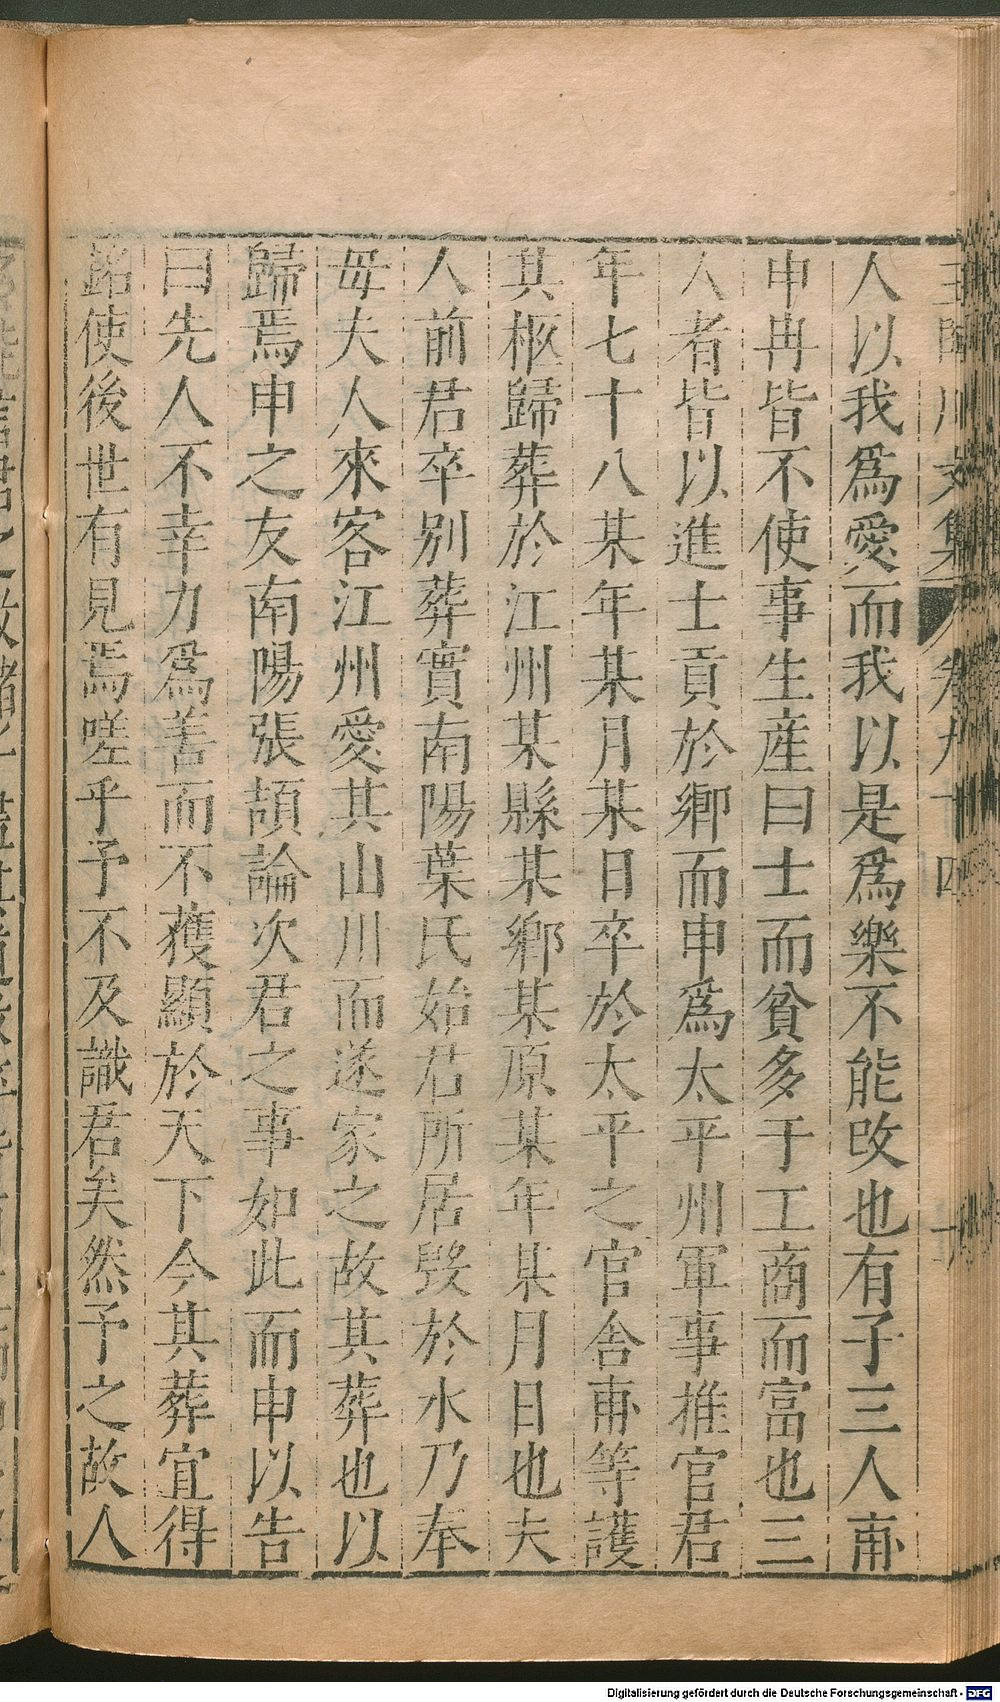 人以我爲愛而我以是爲樂不能改也有子三人甫
申冉皆不使事生産曰士而貧多于工商而富也三
人者皆以進士貢於鄉而申爲太平州軍事推官君
年七十八某年某月某日卒於太平之官舍甫等護
其柩歸葬於江州某縣某鄉某原某年某月日也夫
人前君卒別葬實南陽葉氏始君所居毀於水乃奉
母夫人來客江州愛其山川而遂家之故其葬也以
歸焉申之友南陽張頡論次君之事如此而申以告
曰先人不幸力爲善而不獲顯於天下今其葬宜得
銘使後世有見焉嗟乎予不及識君矣然予之故人
Digitalisierung gefördert durch die Deutsche Forschungsgemeinschaft - DFG